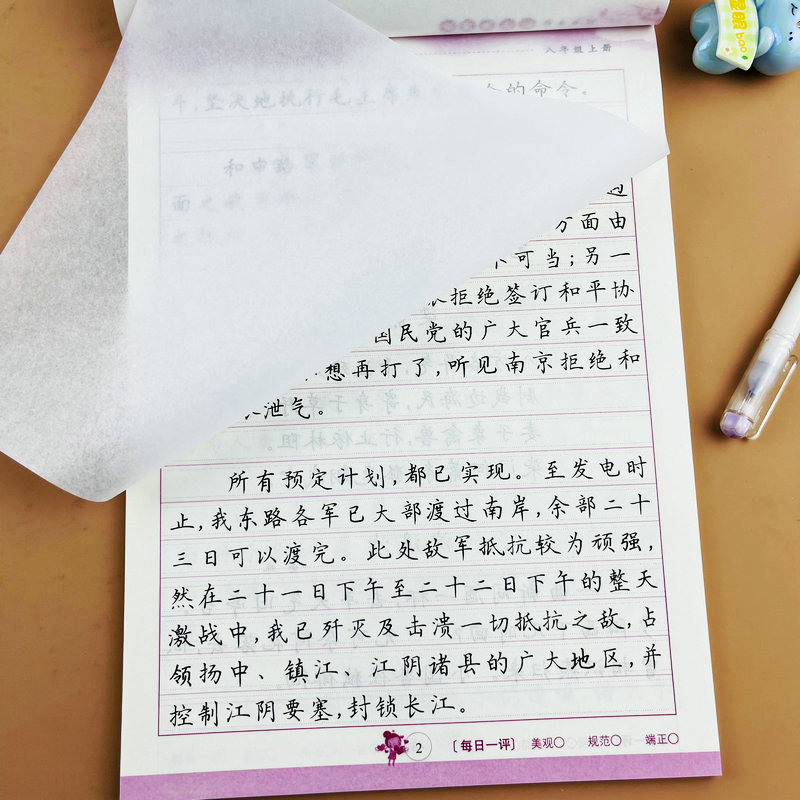 八年级上册
斗，坚决地执行毛主席
的命令。
和中路
面
过
方面由
不可当；另一
拒绝签订和平协
国民党的广大官兵一致
想再打了，听见南京拒绝和
泄气。
所有预定计划，都已实现。至发电时
止，我东路各军已大部渡过南岸，余部二十
三日可以渡完。此处敌军抵抗较为顽强，
然在二十一日下午至二十二日下午的整天
激战中，我已歼灭及击溃一切抵抗之敌，占
领扬中、镇江、江阴诸县的广大地区，并
控制江阴要塞，封锁长江。
2 〔每日一评〕 美观○ 规范○ 端正○